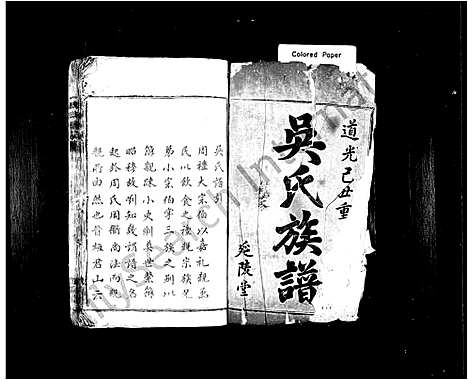 Colored Paper
道光己丑重
吳氏族譜
延陵堂
吳氏譜引
周禮大宗伯以嘉禮親萬
民以飲食之禮親宗族兄
弟小宗伯掌三族之別以
辨親疎小史掌奠世繫辨
昭穆故
起於周氏周衡高法而親
親而由然也昔桓君山六